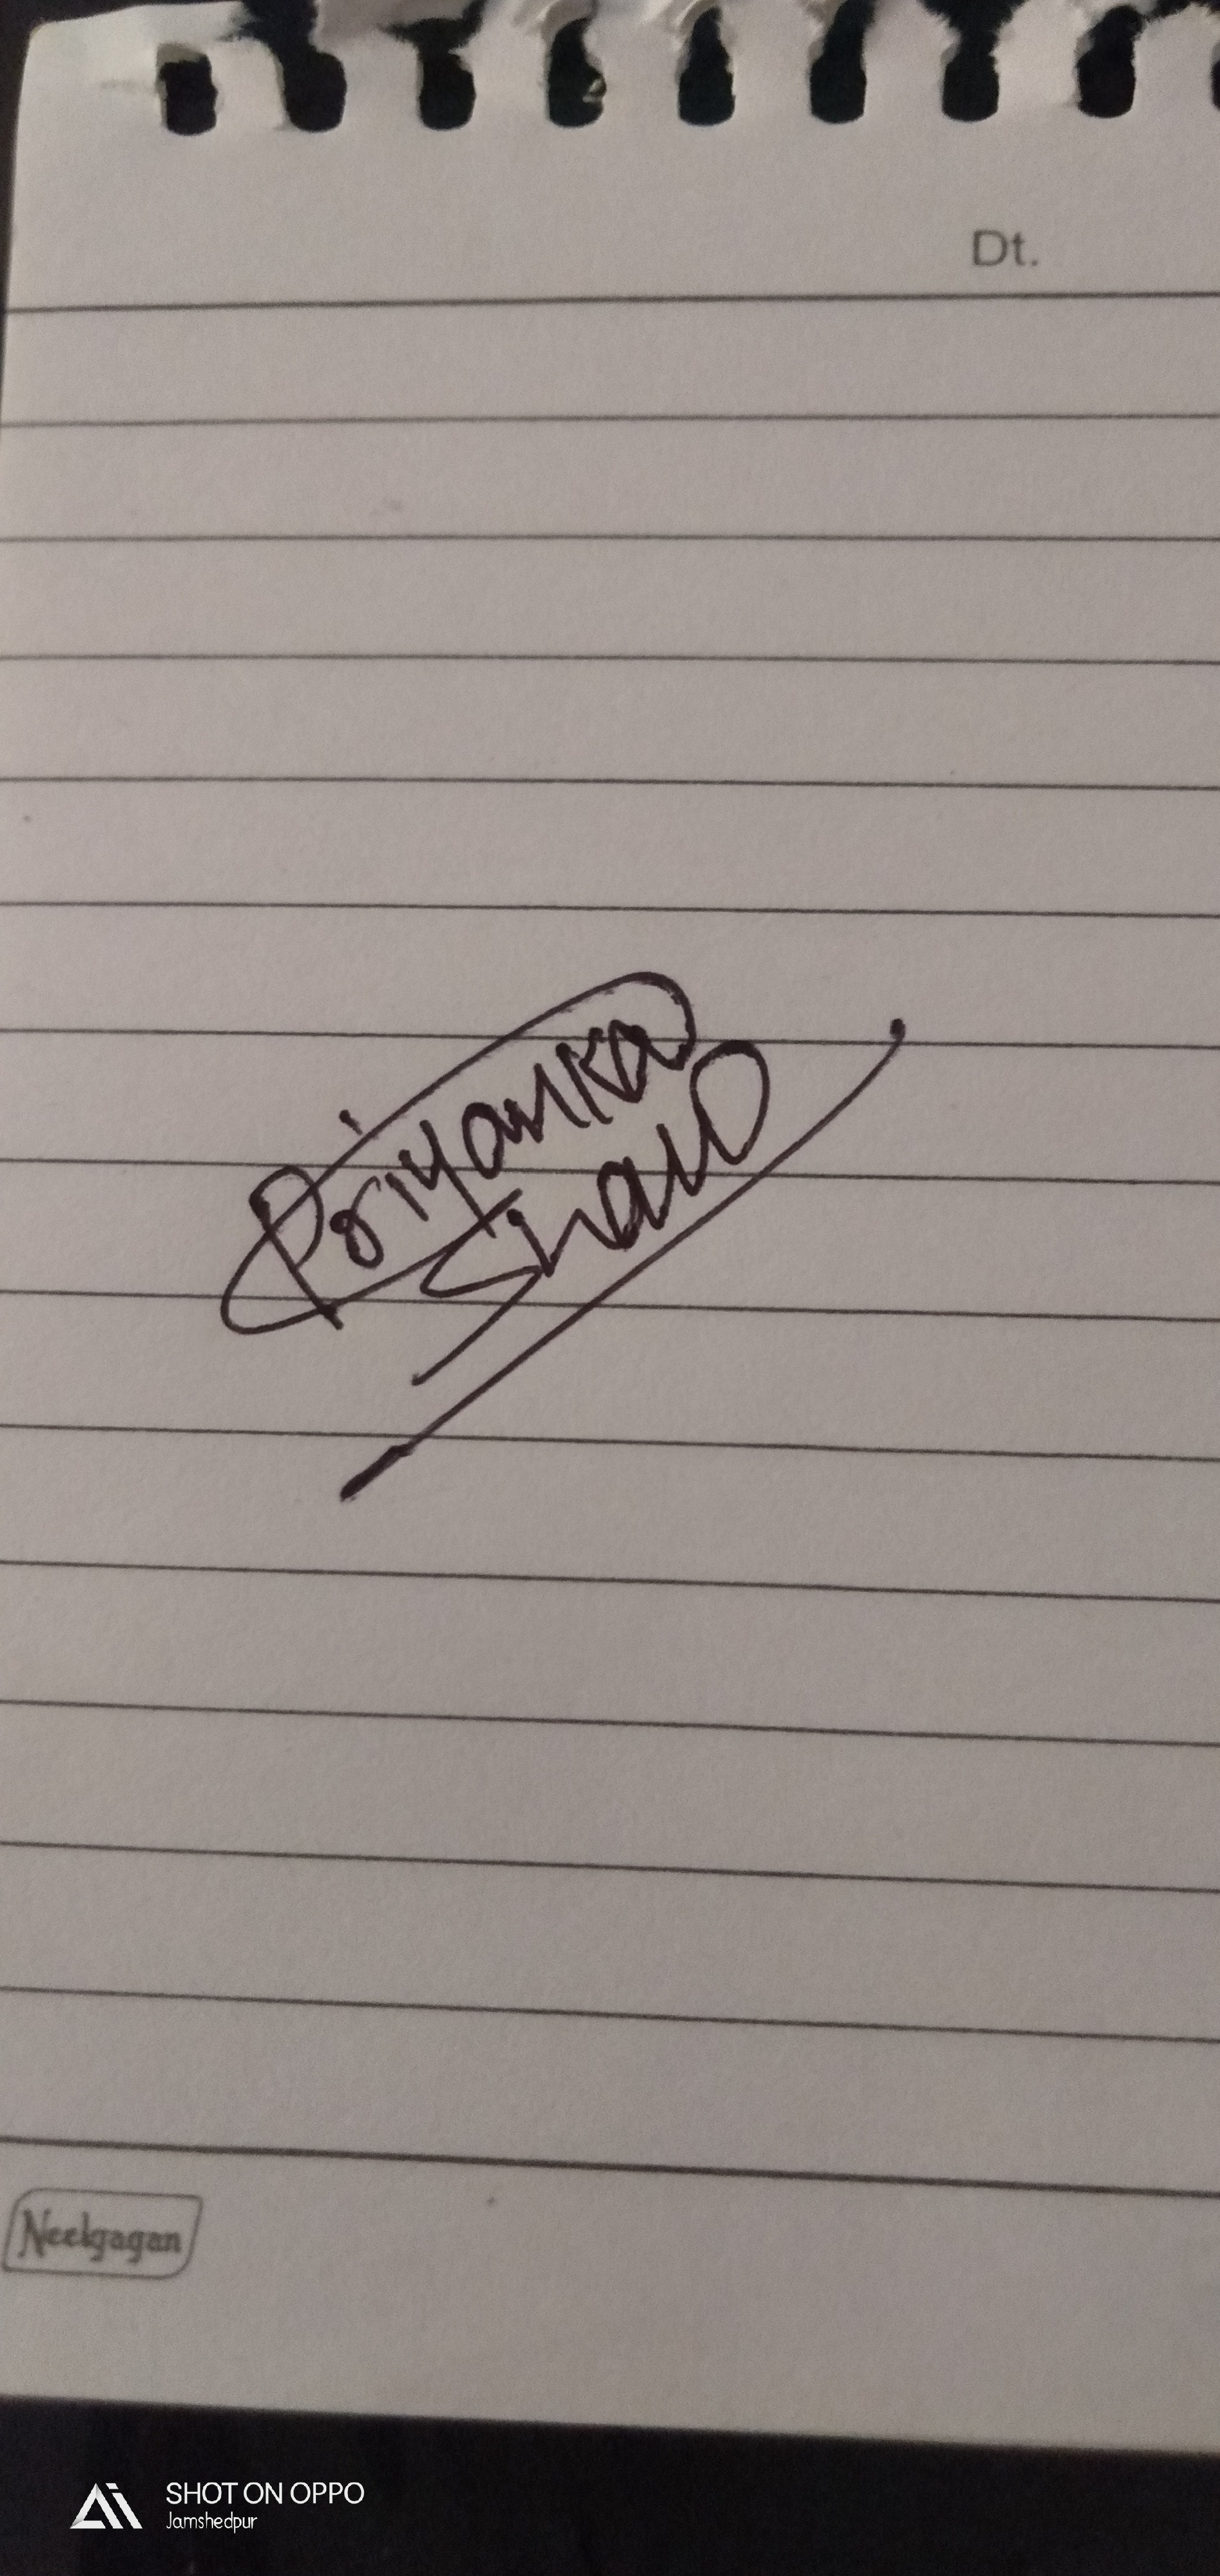 Dt.
Priyanka
Shaw
Neelgagan
SHOT ON OPPO
Jamshedpur